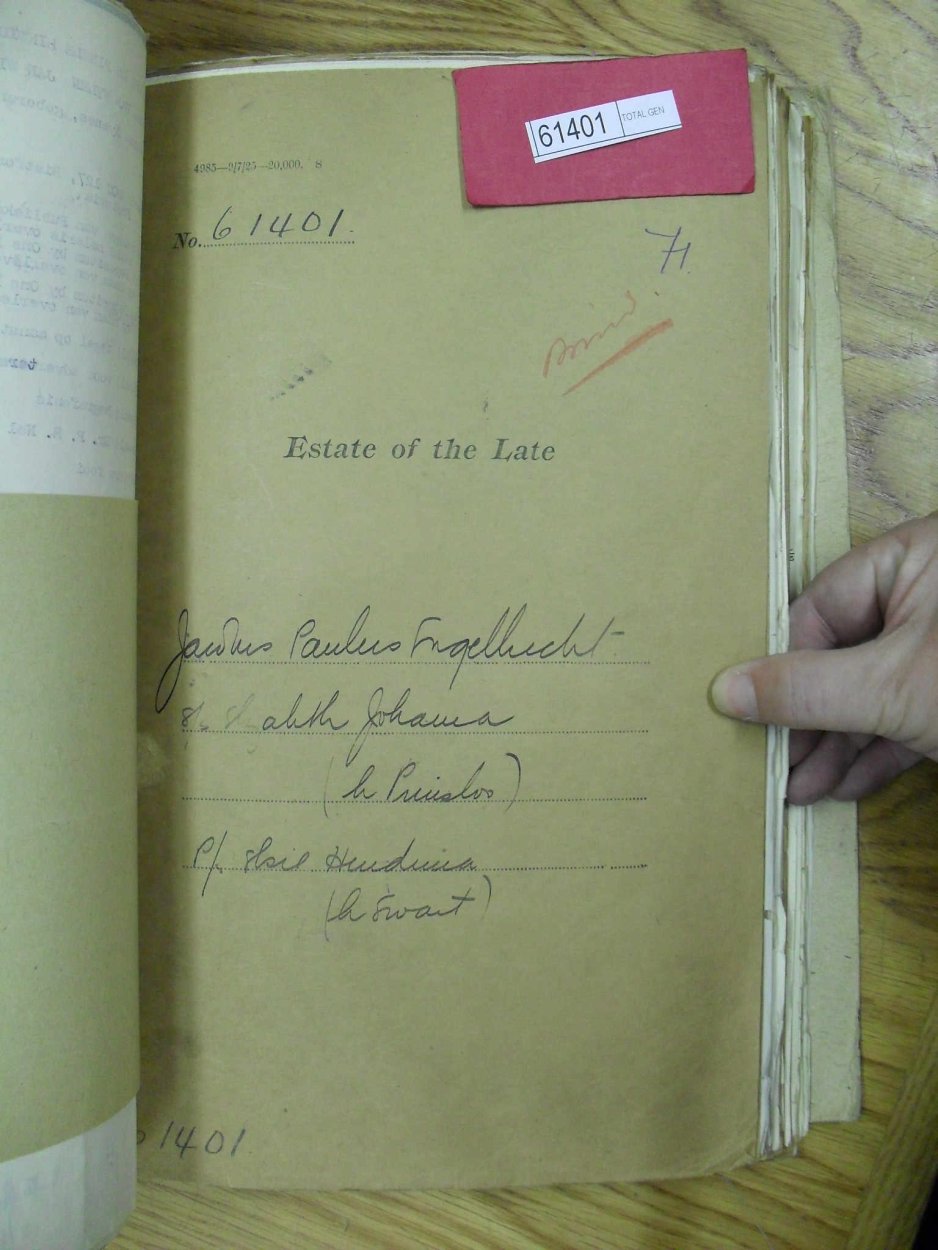 61401 TOTAL GEN
4985—9/7/25—20,000. S
No. 61401.
71
Bond.
Estate of the Late
Jacobus Paulus Engelbrecht
alith Johanna
(b Prinsloo)
P/. Elsie Hendrina
(b Swart)
1401